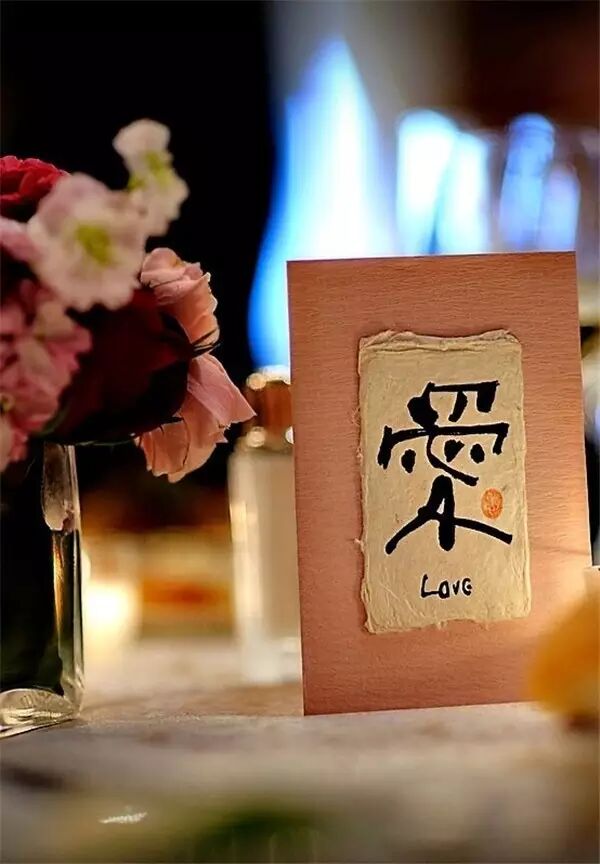 愛
Love